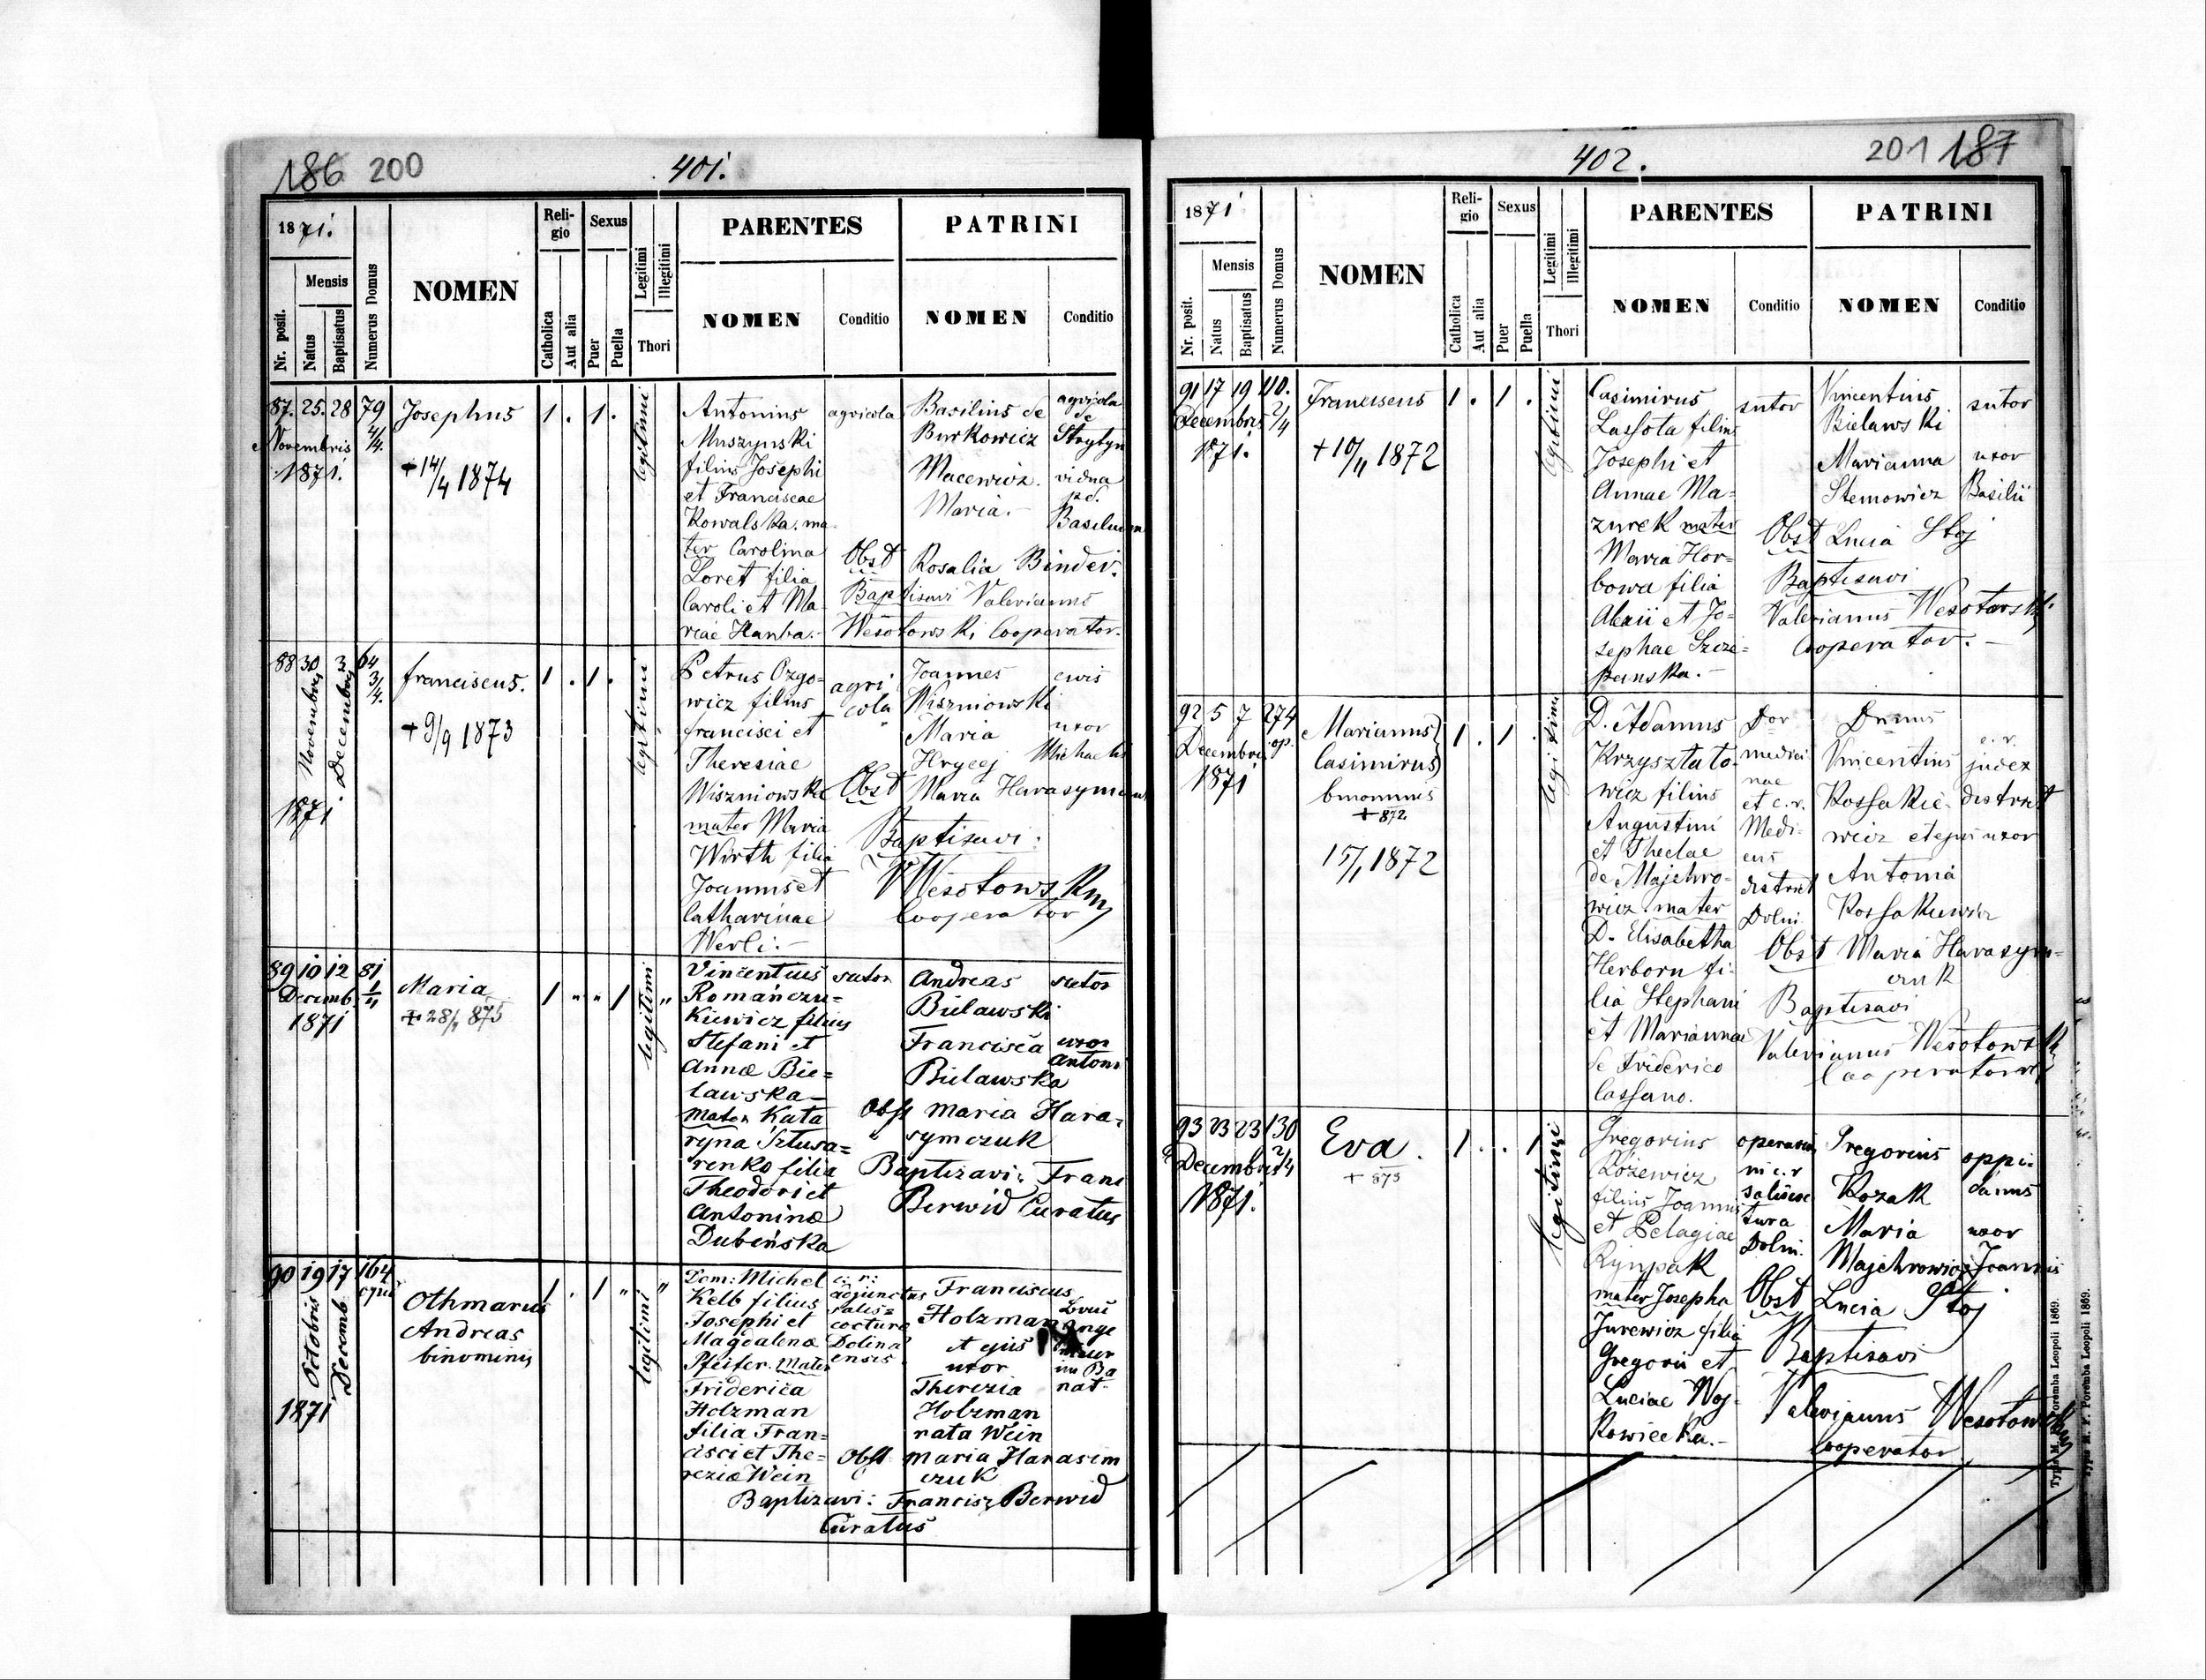 186 200 401.
1871.
Mensis
Nr. posit.
Natus
Baptisatus
Numerus Domus
NOMEN
Religio
Catholica
Aut alia
Sexus
Puer
Puella
Legitimi
Illegitimi
Thori
PARENTES
NOMEN
Conditio
PATRINI
NOMEN
Conditio
87. 25. 28 79
Novembris
1871.
Josephus
+ 14/4 1874
1 . 1 .
legitimi
Antonius
Muszynski
filius Josephi
et Franciscae
Kowalska. ma
ter Carolina
Loret filia
Caroli et Ma-
riae Hanba.-
agricola
Basilius de
Burkowicz
Macewicz
Maria.-
agricola
de
Strytyn
vidua
Basilium
Obst Rosalia Binder.
Baptisavi Valerianus
Wesołowski Cooperator.
88 30 2 64
3/4.
Novembris
Decembris
1871
franciscus.
+ 9/9 1873
1 . 1 .
legitimi
Petrus Ozgo-
wicz filius
francisci et
Theresiae
Wiszniowska
mater Maria
Wirth filia
Joannis et
Catharinae
Werli.-
agri
cola
Joannes
Wiszniowski
Maria
Hrycej
civis
uxor
Michaelis
Obst Maria Harasymczuk
Baptisavi:
VWesołowski
Cooperator
89 10 12 81
Decemb.
1871
Maria
+ 28/1 875
1 " " 1
legitimi "
Vincentius
Romańczu=
kiewicz filius
Stefani et
Annæ Bie=
lawska-
Mater Kata
ryna Sztusa=
renko filia
Theodori et
Antoninæ
Dubeńska
sutor
Andreas
Bielawski
Francisca
Bielawska
sutor
uxor
Antoni
Obst Maria Hara=
symczuk
Baptizavi: Franc
Berwid Curatus
90 19 17 164
Octobris
Decemb
1871
Othmarus
Andreas
binominis
1 . 1 "
legitimi "
Dom: Michel
Kelb filius
Josephi et
Magdalenæ
Pfeifer. Mater
Friderica
Holzman
filia Fran=
cisci et The=
reziæ Wein
c. r:
adjunctus
salis=
cocturæ
Dolina
ensis
Franciscus
Holzman
et ejus
uxor
Therezia
Holzman
nata Wein
im Ba
nat.
Obst Maria Harasim
czuk
Baptizavi: Francisz Berwid
Curatus
402. 201 187
1871
Mensis
Nr. posit.
Natus
Baptisatus
Numerus Domus
NOMEN
Religio
Catholica
Aut alia
Sexus
Puer
Puella
Legitimi
Illegitimi
Thori
PARENTES
NOMEN
Conditio
PATRINI
NOMEN
Conditio
91 17 19 110.
Decembris 2/4
1871.
Franciscus
+ 10/11 1872
1 . 1 .
legitimi
Casimirus
Lassota filius
Josephi et
Annae Ma=
zurek mater
Maria Hor=
bowa filia
Alexii et Jo=
sephae Szcze=
panska.-
sutor
Vincentius
Bielawski
Marianna
Stemowicz
sutor
uxor
Basilii
Obst Lucia Stoj
Baptisavi
Valerianus Wesołowski.
Cooperator.-
92 5 7 274
Decembris op.
1871
Marianus
Casimirus
binominis
+ 872
15/1 1872
1 . 1 .
legitimi
D. Adamus
Krzysztato-
wicz filius
Augustini
et Theclae
de Majchro-
wicz. mater
D. Elisabetha
Herborn fi-
lia Stephani
et Mariannae
de Friderico
Cassano.
Dor
medici
nae
et c. r.
Medi-
cus
district
Dolin.
Vincentius
Kossakie-
wicz et ejus uxor
Antonia
Kossakiewicz
c. r.
judex
district
Obst Maria Harasym-
czuk
Baptisavi
Valerianus Wesołowski
Cooperator
93 23 23 130
Decembris 2/4
1871.
Eva.
+ 873
1 . . 1
legitimi
Gregorius
Rożewicz
filius Joannis
et Pelagiae
Rynpak
mater Josepha
Jurewicz filia
Gregorii et
Luciae Woj-
kowiecka.-
operarius
in c. r
Dolin.
Gregorius
Kozak
Maria
Majchrowicz
oppi-
danus
uxor
Joannis
Obst Lucia Stoj
Baptisavi
Valerianus Wesołowski
Cooperator
Typis M. F. Poremba Leopoli 1869.
Typis M. F. Poremba Leopoli 1869.